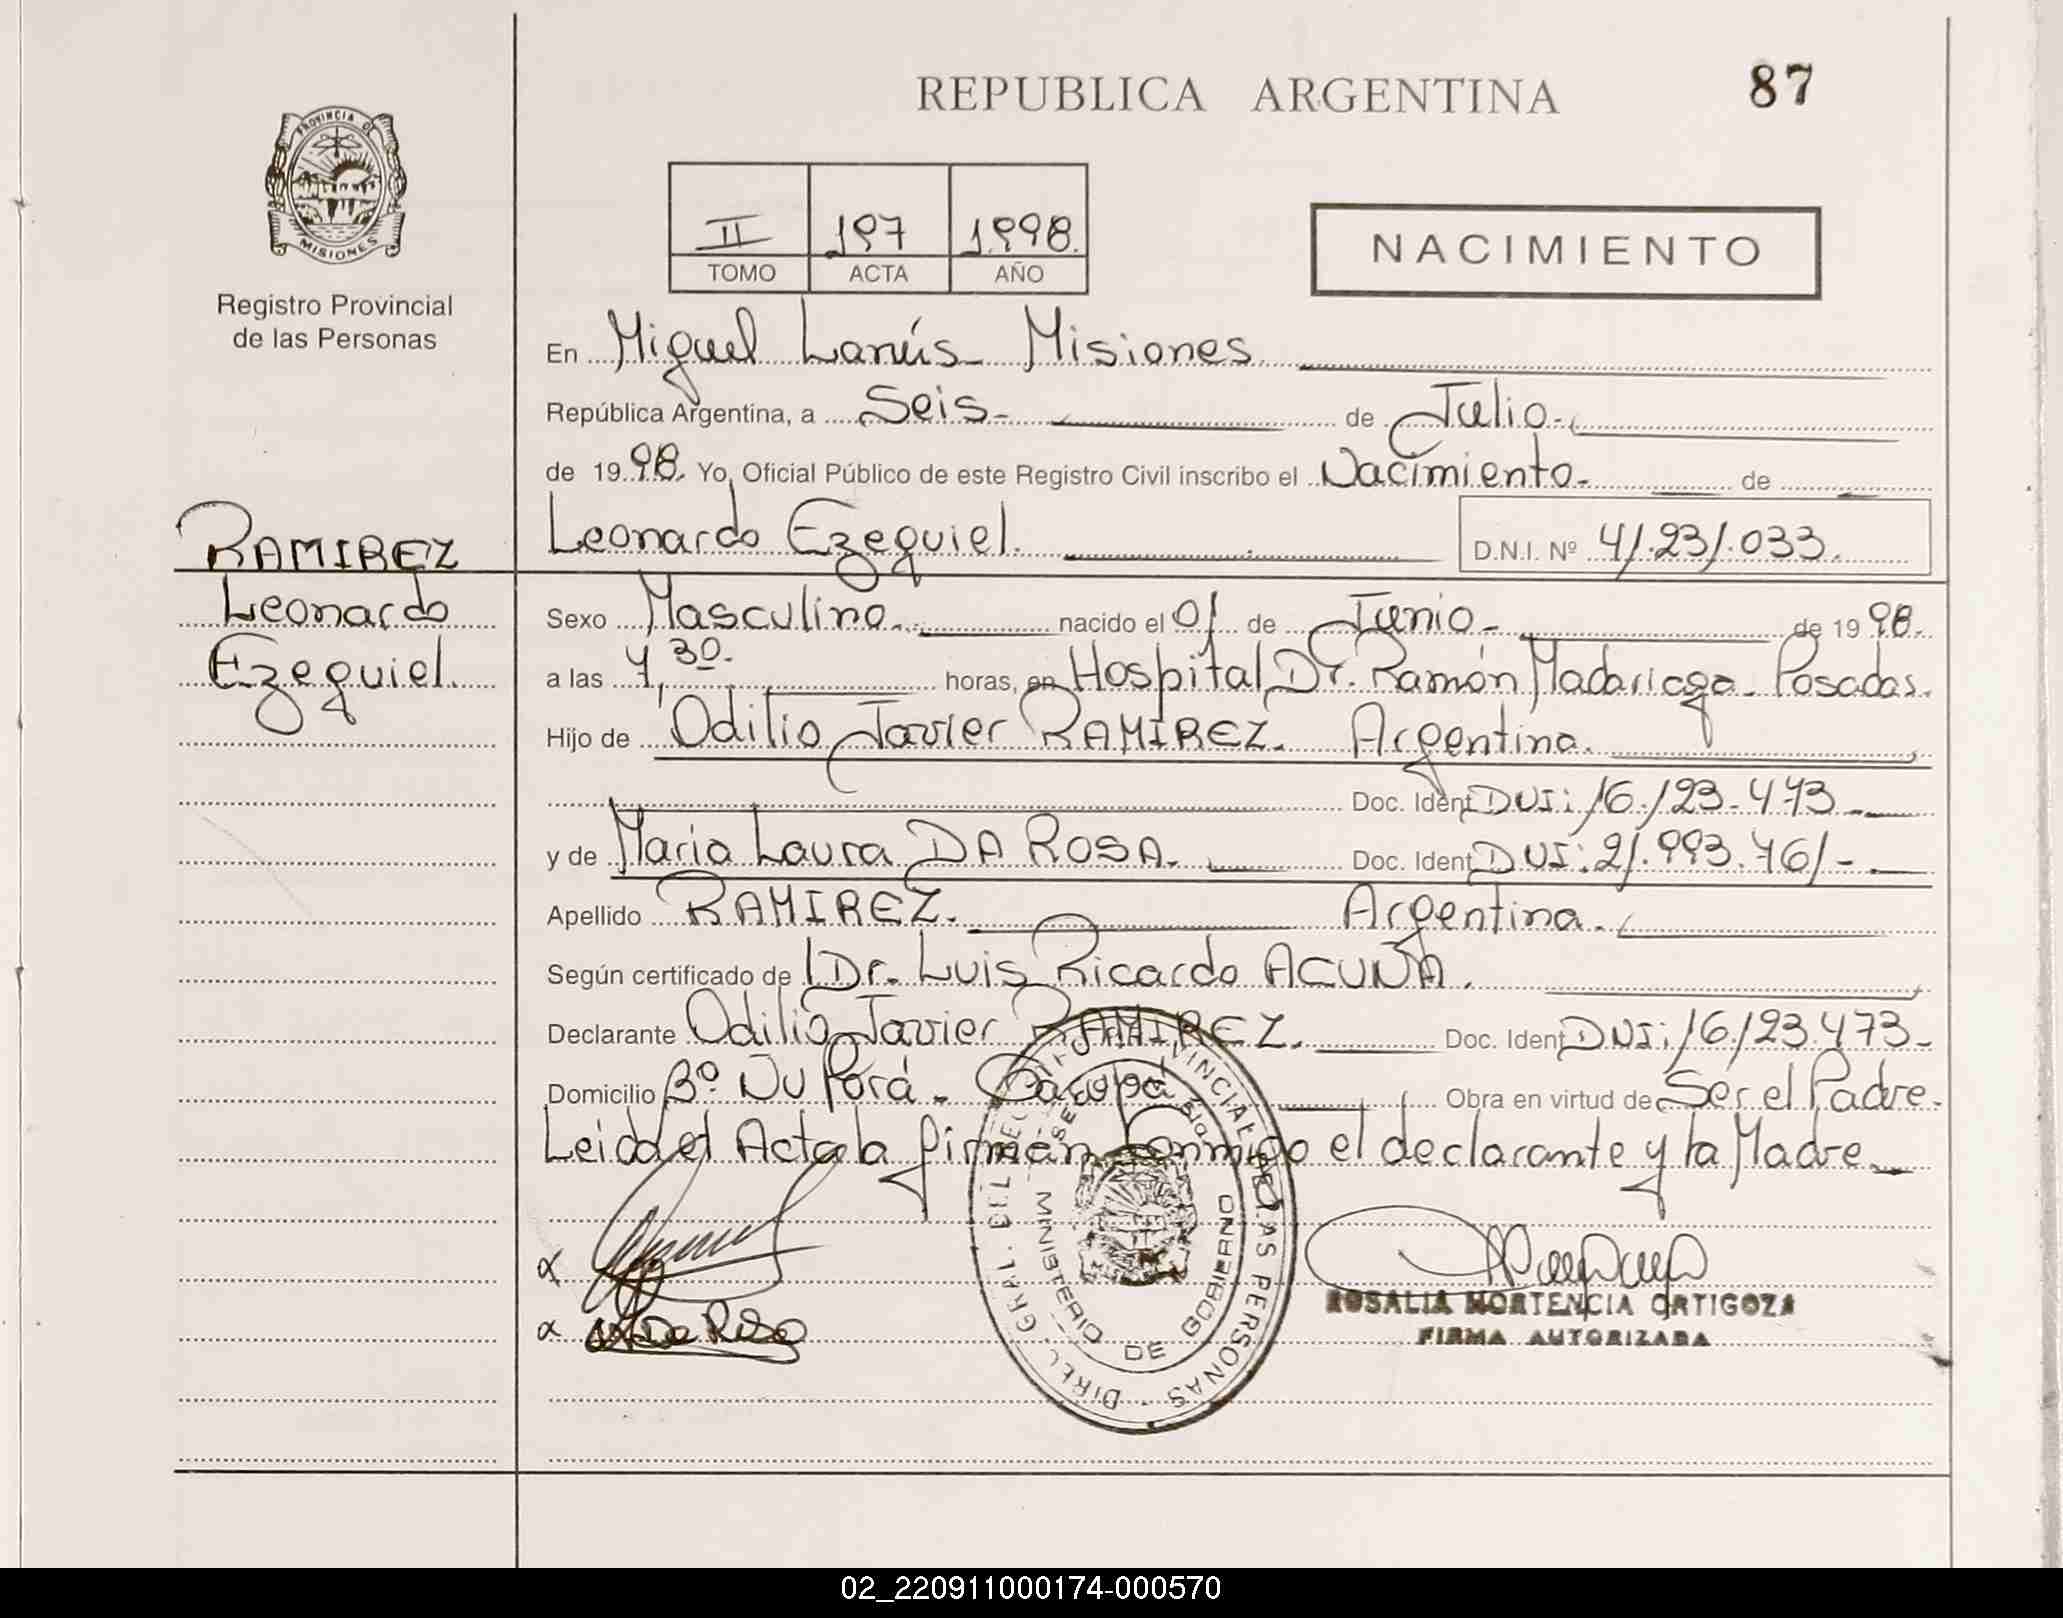 REPUBLICA ARGENTINA
87
PROVINCIA DE
MISIONES
Registro Provincial
de las Personas
II 197 1998.
TOMO ACTA AÑO
NACIMIENTO
En Miguel Lanús Misiones
República Argentina, a Seis- de Julio.
de 1998. Yo, Oficial Público de este Registro Civil inscribo el Nacimiento- de
Leonardo Ezequiel. D.N.I. Nº 41.231.033.
RAMIREZ
Leonardo
Ezequiel.
Sexo Masculino. nacido el 01 de Junio- de 1998.
a las 7,30. horas, en Hospital Dr. Ramón Madariaga. Posadas.
Hijo de Odilio Javier RAMIREZ. Argentina.
Doc. Ident DNI: 16.123.473-
y de Maria Laura DA ROSA. Doc. Ident DNI: 21.993.761-
Apellido RAMIREZ. Argentina.
Según certificado de Dr. Luis Ricardo ACUÑA.
Declarante Odilio Javier RAMIREZ. Doc. Ident DNI: 16.123.473-
Domicilio Bº Ñu Porá. Garupá Obra en virtud de Ser el Padre.
Leida el Acta la firman Conmigo el declarante y la Madre.
DIREC. GRAL. DEL REG. PROVINCIAL DE LAS PERSONAS
MINISTERIO DE GOBIERNO
ROSALIA HORTENCIA ORTIGOZA
FIRMA AUTORIZADA
02_220911000174-000570